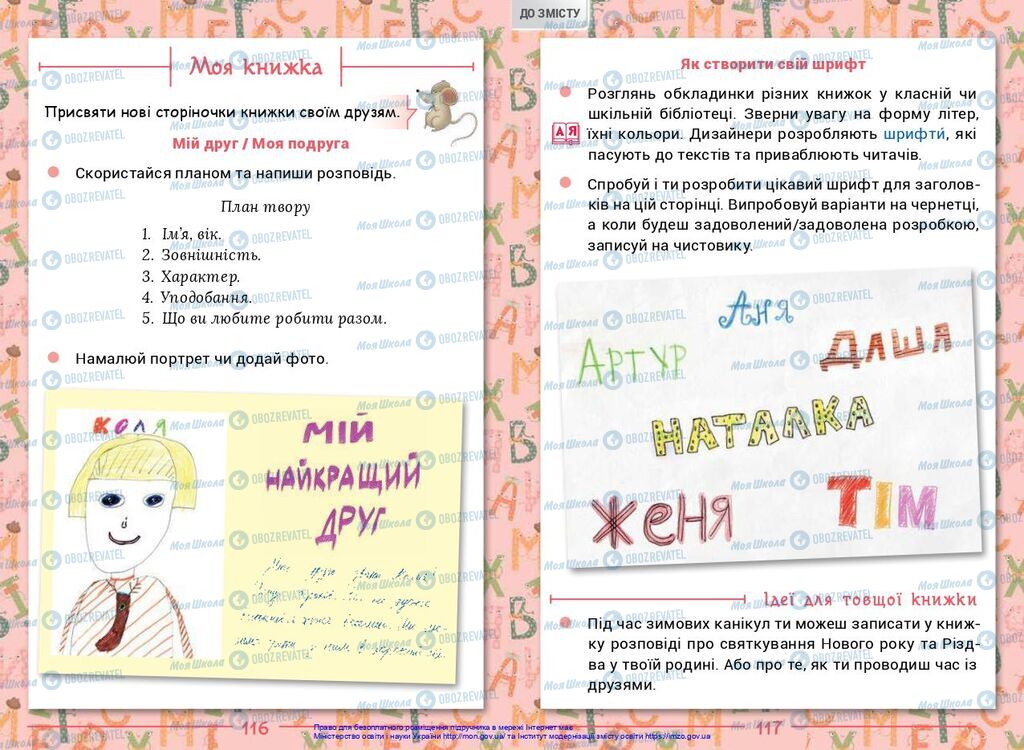 ДО ЗМІСТУ
Моя книжка
Присвяти нові сторіночки книжки своїм друзям.
Мій друг / Моя подруга
Скористайся планом та напиши розповідь.
План твору
1. Ім'я, вік.
2. Зовнішність.
3. Характер.
4. Уподобання.
5. Що ви любите робити разом.
Намалюй портрет чи додай фото.
КОЛЯ
МІЙ
НАЙКРАЩИЙ
ДРУГ
116
Як створити свій шрифт
Розглянь обкладинки різних книжок у класній чи
шкільній бібліотеці. Зверни увагу на форму літер,
АЯ
їхні кольори. Дизайнери розробляють шрифти́, які
пасують до текстів та приваблюють читачів.
Спробуй і ти розробити цікавий шрифт для заголов-
ків на цій сторінці. Випробовуй варіанти на чернетці,
а коли будеш задоволений/задоволена розробкою,
записуй на чистовику.
Аня
Артур
ДАША
НАТАЛКА
Женя
ТІМ
Ідеї для товщої книжки
Під час зимових канікул ти можеш записати у книж-
ку розповіді про святкування Нового року та Різд-
ва у твоїй родині. Або про те, як ти проводиш час із
друзями.
117
Право для безоплатного розміщення підручника в мережі Інтернет має
Міністерство освіти і науки України http://mon.gov.ua/ та Інститут модернізації змісту освіти https://imzo.gov.ua
Моя Школа OBOZREVATEL